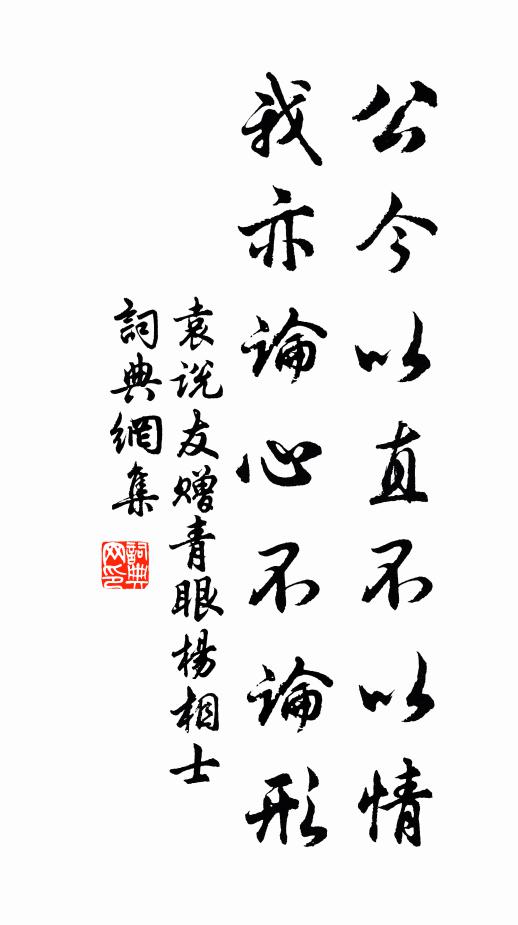 公今以直不以情
我亦論心不論形
袁说友赠青眼楊相士
詞典網集
詞典網印